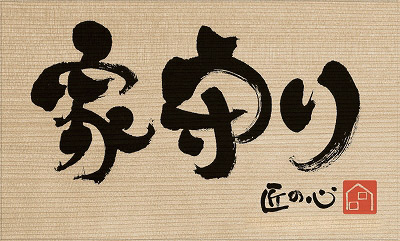 家守り
匠の心